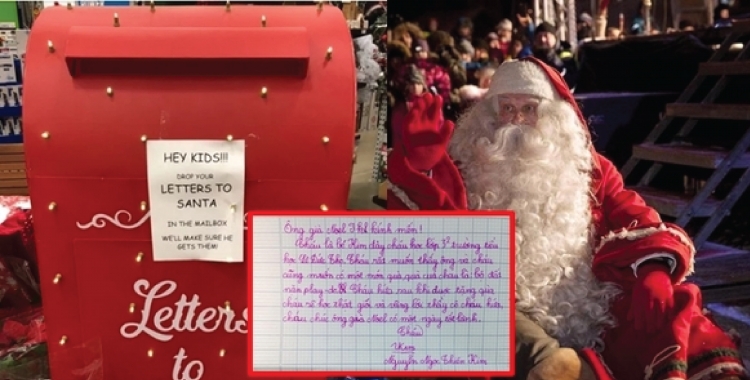 HEY KIDS!!!
DROP YOUR
LETTERS TO
SANTA
IN THE MAILBOX
WE'LL MAKE SURE HE
GETS THEM!
Letters
to
Ông già Noel kính mến!
Cháu là bé Kim đây cháu học lớp 3 trường tiểu
học Cháu rất muốn thấy ông và cháu
cũng muốn có một món quà, quà của cháu là: bộ đất
nặn play-doh Cháu hứa sau khi được tặng quà
cháu sẽ học thật giỏi và vâng lời thầy cô cháu hứa,
cháu chúc ông già Noel có một ngày tốt lành.
Cháu
Kim
Nguyễn Ngọc Thiên Kim